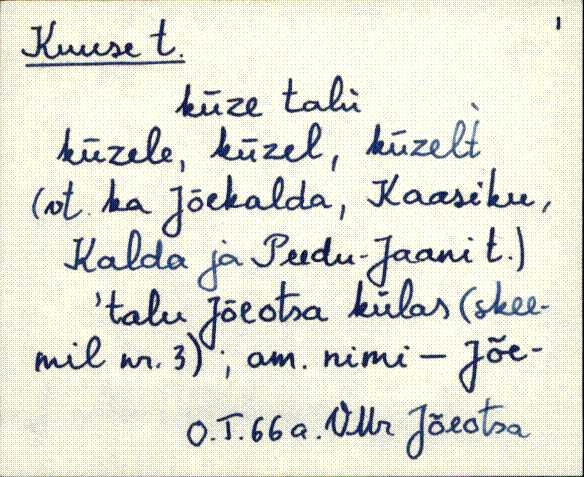 1
Kuuse t.
kūze talu
kūzele, kūzel, kūzelt̀
(vt. ka Jõekalda, Kaasiku,
Kalda ja Peedu-Jaani t.)
'talu Jõeotsa külas (skee-
mil nr. 3)'; am. nimi – Jõe-
O.T. 66 a. VMr Jõeotsa